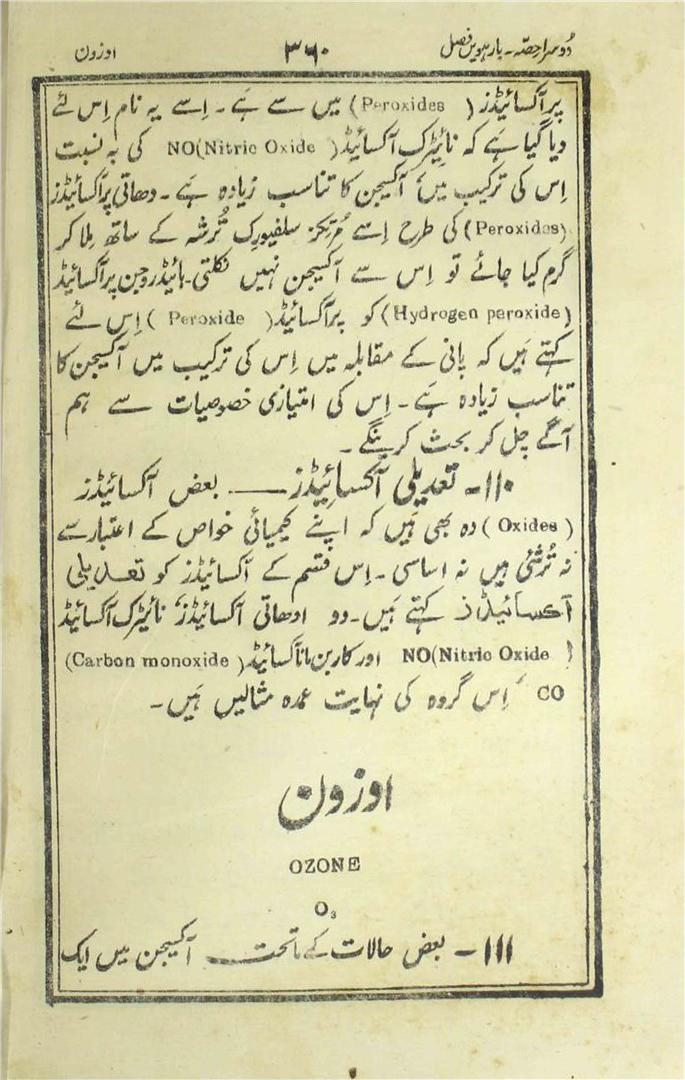 دُوسرا حصّہ - بارہویں فصل ۳۶۰ اوزون
پر آکسائیڈز (Peroxides) میں سے ہَے - اِسے یہ نام اِس لئے
دیا گیا ہَے کہ نائیٹرک آکسائیڈ (Nitric Oxide) NO کی بہ نسبت
اِس کی ترکیب میں آکسیجن کا تناسب زیادہ ہَے - دھاتی پر آکسائیڈز
(Peroxides) کی طرح اِسے مُرتکز سلفیورک تُرشہ کے ساتھ مِلا کر
گرم کیا جائے تو اِس سے آکسیجن نہیں نکلتی - ہائیڈروجن پر آکسائیڈ
(Hydrogen peroxide) کو پر آکسائیڈ (Peroxide) اِس لئے
کہتے ہَیں کہ پانی کے مقابلہ میں اِس کی ترکیب میں آکسیجن کا
تناسب زیادہ ہَے - اِس کی امتیازی خصوصیات سے ہم
آگے چل کر بحث کرینگے -
۱۱۰ - تعدیلی آکسائیڈز —— بعض آکسائیڈز
(Oxides) وہ بھی ہَیں کہ اپنے کیمیائی خواص کے اعتبار سے
نہ تُرشئی ہیں نہ اساسی - اِس قسم کے آکسائیڈز کو تعدیلی
آکسائیڈز کہتے ہَیں - دو ادھاتی آکسائیڈز، نائیٹرک آکسائیڈ
(Nitric Oxide) NO اور کاربن مانآکسائیڈ (Carbon monoxide)
CO، اِس گروہ کی نہایت عمدہ مثالیں ہَیں -
اوزون
OZONE
O₃
۱۱۱ - بعض حالات کے ماتحت آکسیجن میں ایک